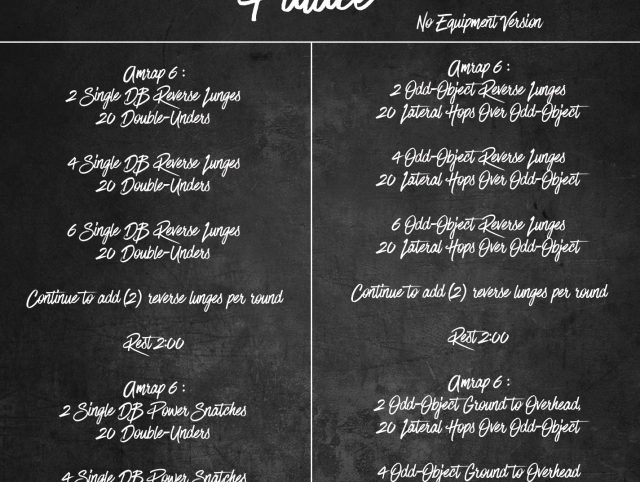 No Equipment Version
Amrap 6 :
2 Single DB Reverse Lunges
20 Double-Unders
4 Single DB Reverse Lunges
20 Double-Unders
6 Single DB Reverse Lunges
20 Double-Unders
Continue to add (2) reverse lunges per round
Rest 2:00
Amrap 6 :
2 Single DB Power Snatches
20 Double-Unders
4 Single DB Power Snatches
Amrap 6 :
2 Odd-Object Reverse Lunges
20 Lateral Hops Over Odd-Object
4 Odd-Object Reverse Lunges
20 Lateral Hops Over Odd-Object
6 Odd-Object Reverse Lunges
20 Lateral Hops Over Odd-Object
Continue to add (2) reverse lunges per round
Rest 2:00
Amrap 6 :
2 Odd-Object Ground to Overhead,
20 Lateral Hops Over Odd-Object
4 Odd-Object Ground to Overhead